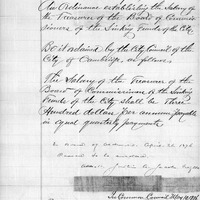 An Ordinance establishing the Salary of
the Treasurer of the Board of Commis-
sioners of the Sinking Funds of the City.
Be it ordained by the City Council of the
City of Cambridge, as follows
The Salary of the Treasurer of the
Board of Commissioners of the Sinking
Funds of the City shall be Three
Hundred dollars per annum payable
in equal quarterly payments.
In Board of Aldermen, April 22, 1896
Passed to be ordained.
Attest
In Common Council May